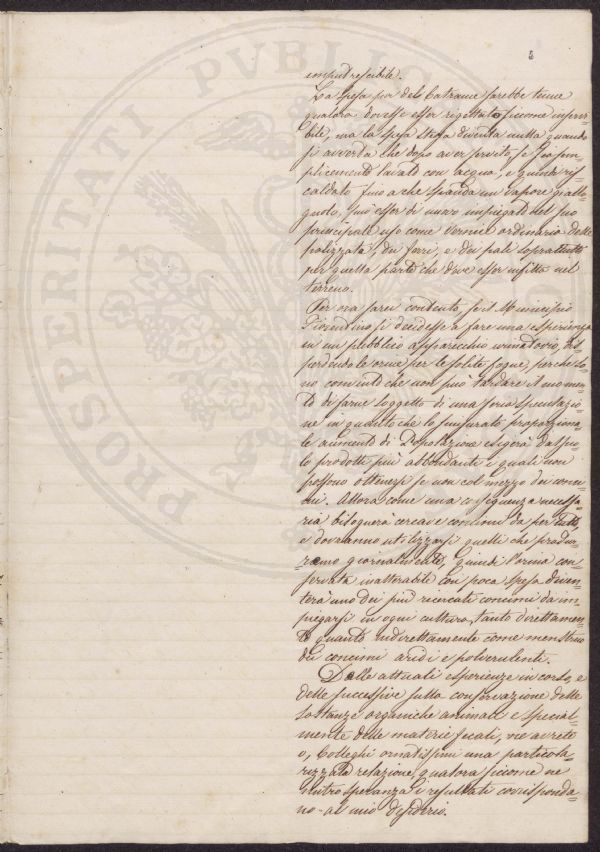 5
imputrescibile.
La spesa poi del Catrame sarebbe tenue
qualora dovesse esser rigettato siccome inservi=
bile, ma la spesa stessa diventa nulla quando
si avverta che dopo aver servito, se sia sem=
plicemente lavato con acqua, e quindi ris=
caldato fino a che spanda un vapore gialle=
gnolo, può esser di nuovo impiegato nel suo
principale uso come vernice ordinaria delle
palizzate, dei ferri, e dei pali soprattutto
per quella parte che deve esser infitta nel
terreno.
Per ora sarei contento, se il Municipio
Fiorentino si decidesse a fare una esperienza
in un pubblico apparecchio orinatorio,
perdendo le orine per le solite fogne, perchè so=
no convinto che non può tardare il momen=
to di farne soggetto di una seria speculazio=
ne in quanto che lo smisurato proporziona=
le aumento di Popolazione esigerà dal suo=
lo prodotti più abbondanti i quali non
possono ottenersi se non col mezzo dei conci=
mi. Allora come una conseguenza necessa=
ria bisognerà cercare concimi da per tutto
e dovranno utilizzarsi quelli che produr=
=remo giornalmente, quindi l'orina con=
servata inalterabile con poca spesa diven=
terà uno dei più ricercati concimi da im=
piegarsi in ogni cultura, tanto direttamen=
te quanto indirettamente come menstruo
dei concimi aridi e polverulenti.
Delle attuali esperienze in corso, e
delle successive sulla conservazione delle
sostanze organiche animali e special=
mente delle materie fecali, ne avrete
o, Colleghi ornatissimi una particola=
rizzata relazione, qualora siccome ne
nutro speranza i resultati corrisponda=
no al mio desiderio.
PROSPERITATI PVBLICAE